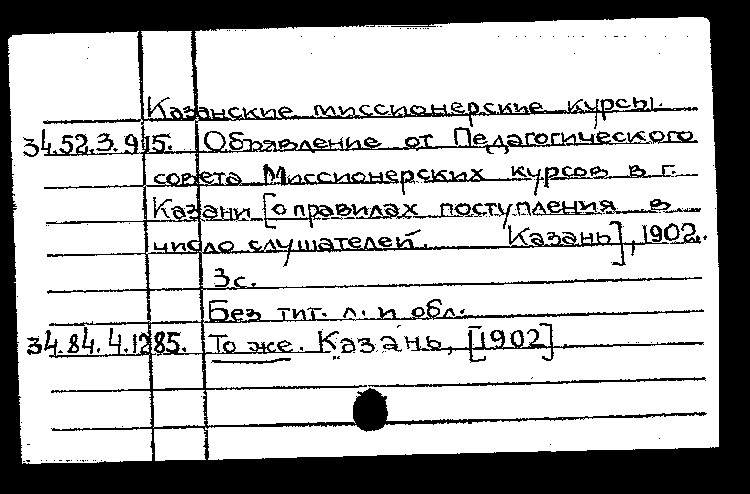 Казанские миссионерские курсы.
34.52.3.915. Объявление от Педагогического
совета Миссионерских курсов в г.
Казани [о правилах поступления в
число слушателей. Казань], 1902.
3с.
Без тит. л. и обл.
34.84.4.1285. То же. Казань, [1902].